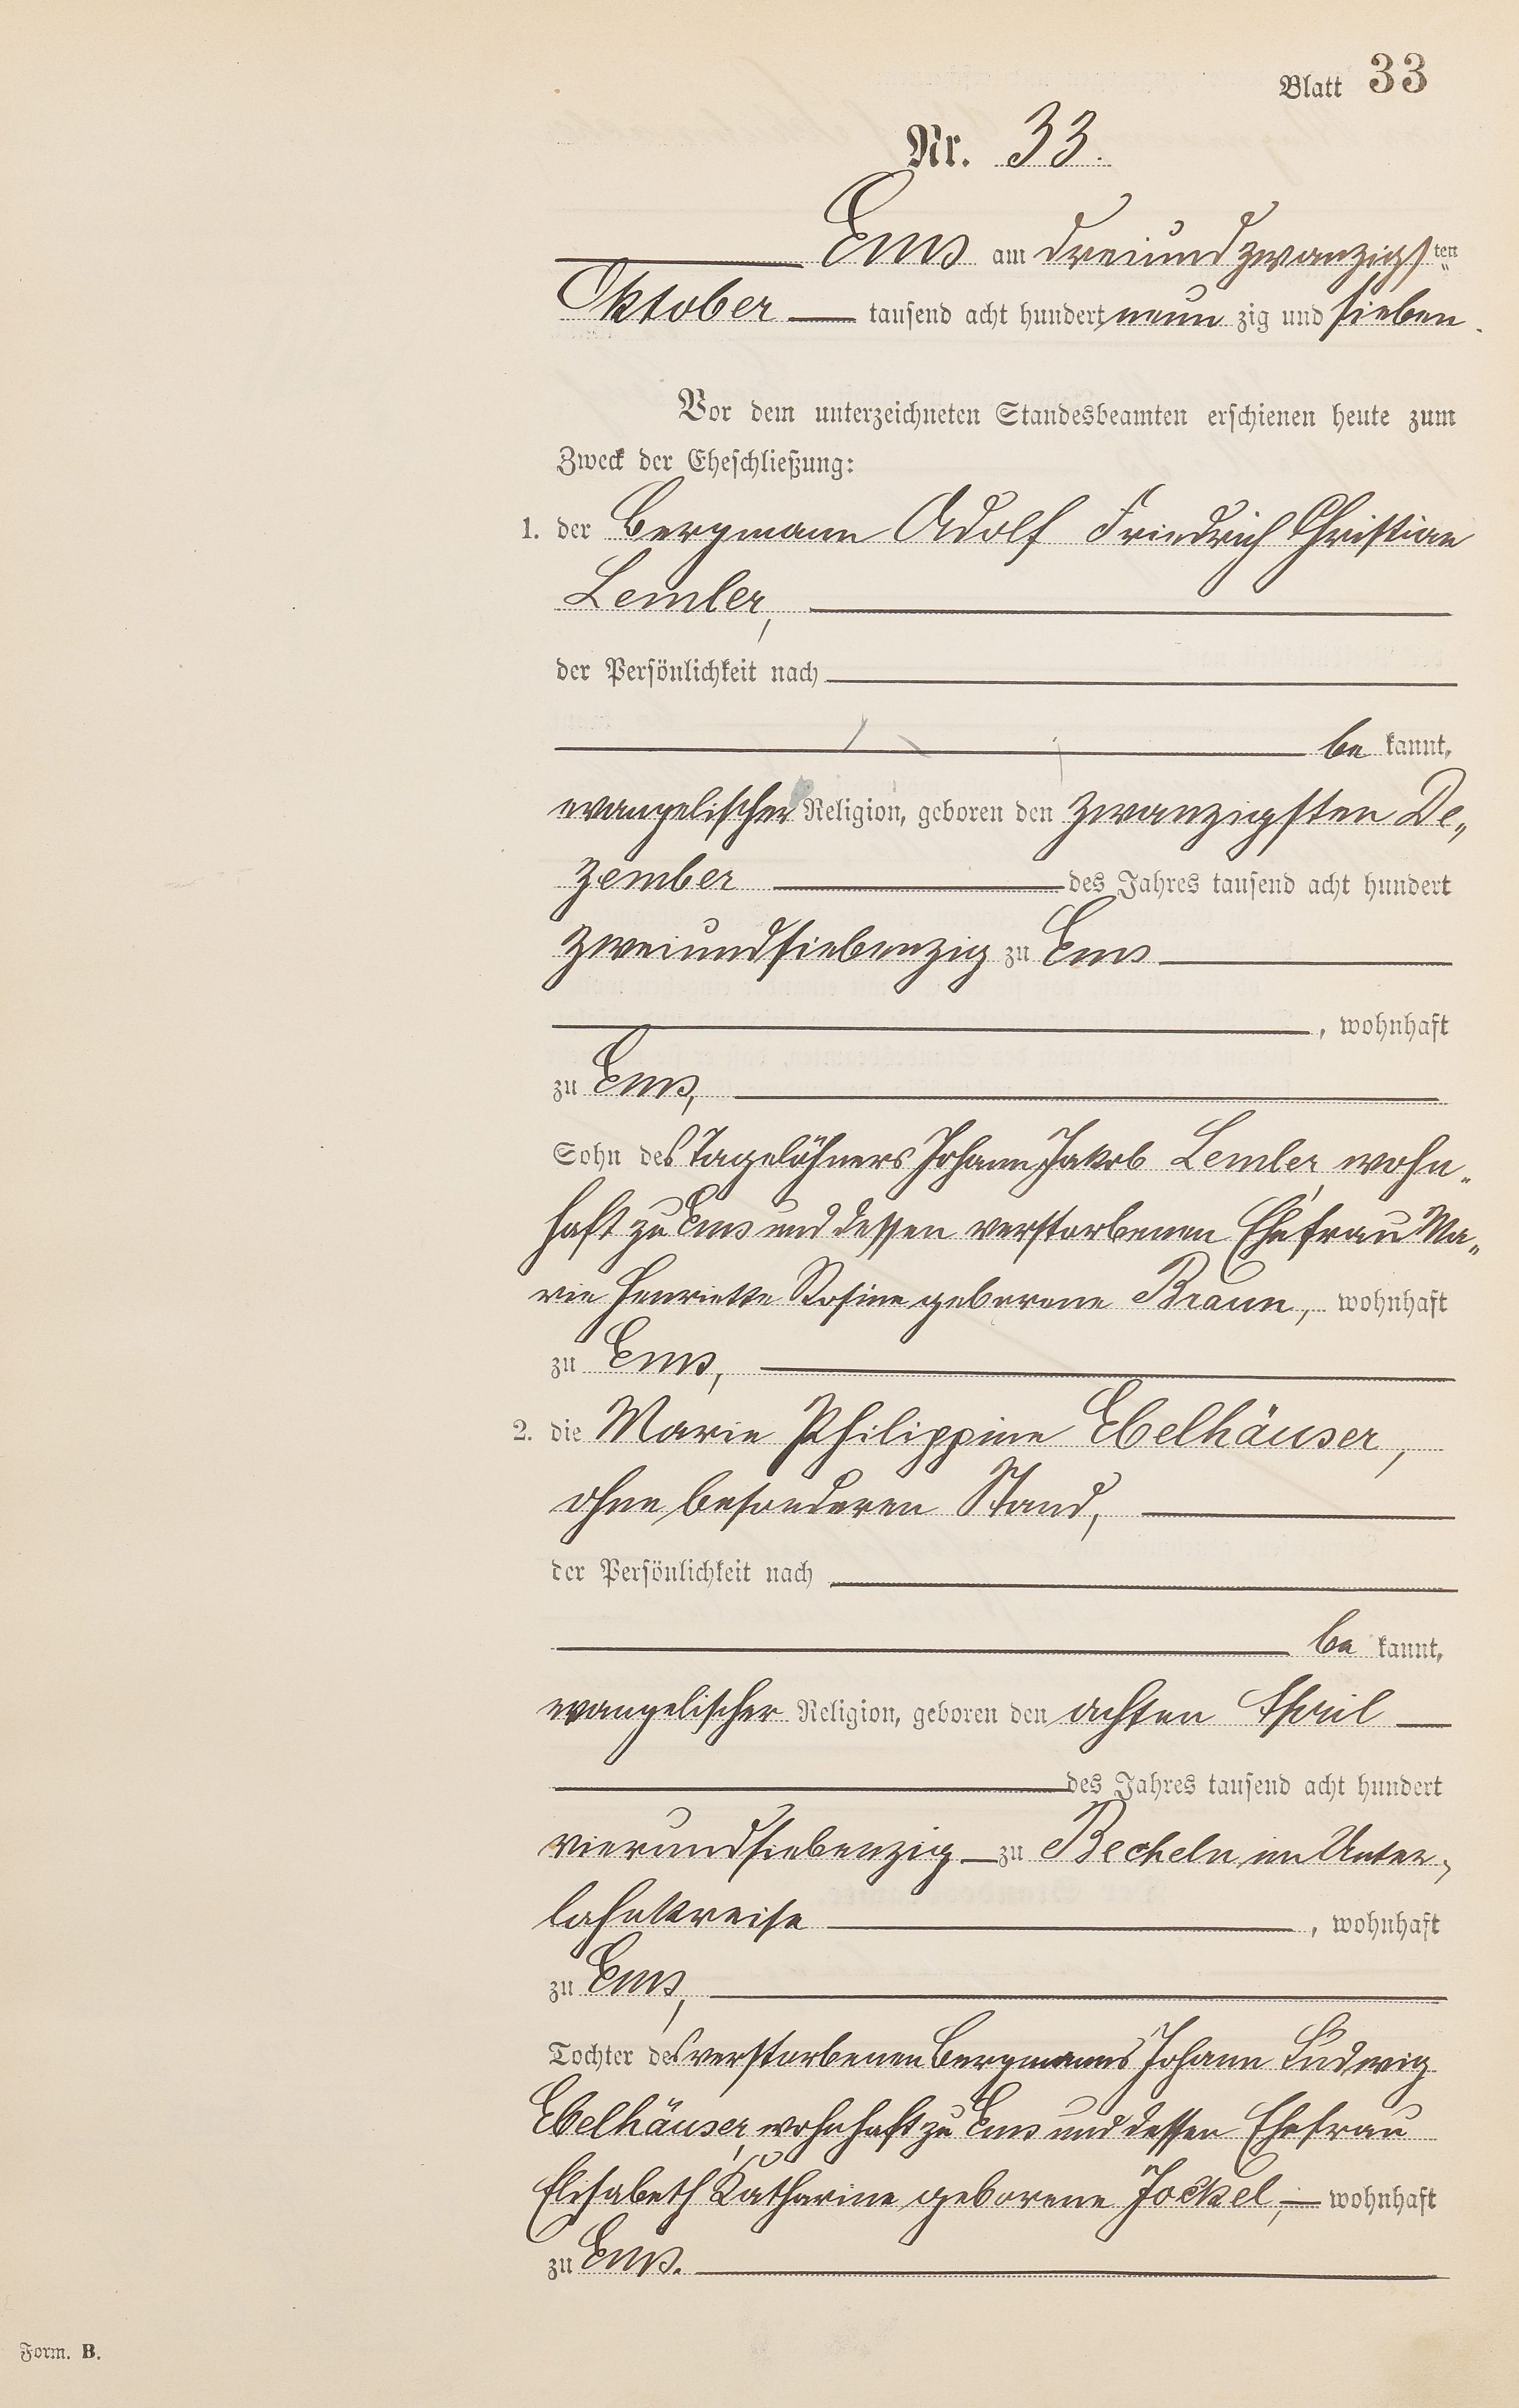 Blatt 33
Nr. 33.
Ems am dreiundzwanzigs ten
Oktober tausend acht hundert neun zig und sieben.
Vor dem unterzeichneten Standesbeamten erschienen heute zum
Zweck der Eheschließung:
1. der Bergmann Adolf Friedrich Christian
Lemler,
der Persönlichkeit nach
be kannt,
evangelischer Religion, geboren den zwanzigsten De„
zember des Jahres tausend acht hundert
zweiundsiebenzig zu Ems
, wohnhaft
zu Ems,
Sohn des Tagelöhners Johann Jakob Lemler, wohn„
haft zu Ems und dessen verstorbenen Ehefrau Ma„
rie Henriette Rosine geborene Braun, wohnhaft
zu Ems,
2. die Marie Philippine Ebelhäuser,
ohne besonderen Stand,
der Persönlichkeit nach
be kannt,
evangelischer Religion, geboren den achten April
des Jahres tausend acht hundert
vierundsiebenzig zu Becheln im Unter„
lahnkreise , wohnhaft
zu Ems,
Tochter des verstorbenen Bergmanns Johann Ludwig
Ebelhäuser, wohnhaft zu Ems und dessen Ehefrau
Elisabeth Katharine geborene Jockel, wohnhaft
zu Ems.
Form. B.